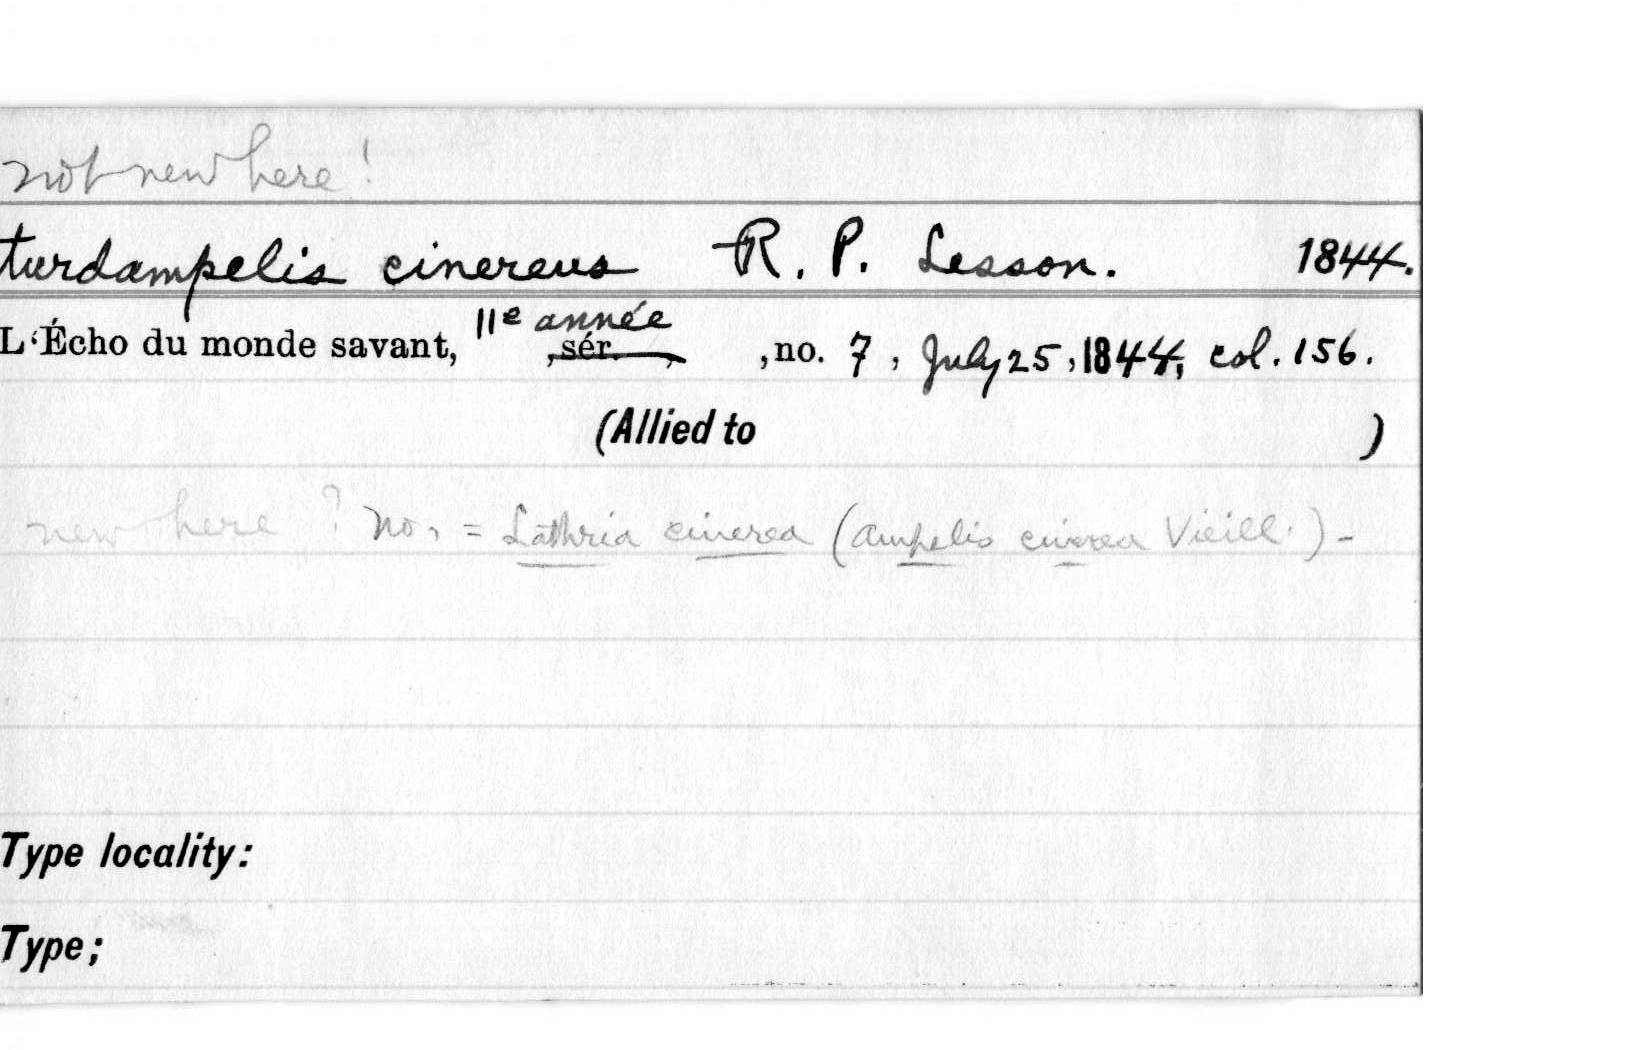 not new here!
turdampelis cinereus R. P. Lesson. 1844.
L'Écho du monde savant, 11e année, sér. , no. 7, July 25, 1844, col. 156.
(Allied to )
new here ? No, = Lathria cinerea (Ampelis cinerea Vieill.) -
Type locality:
Type;